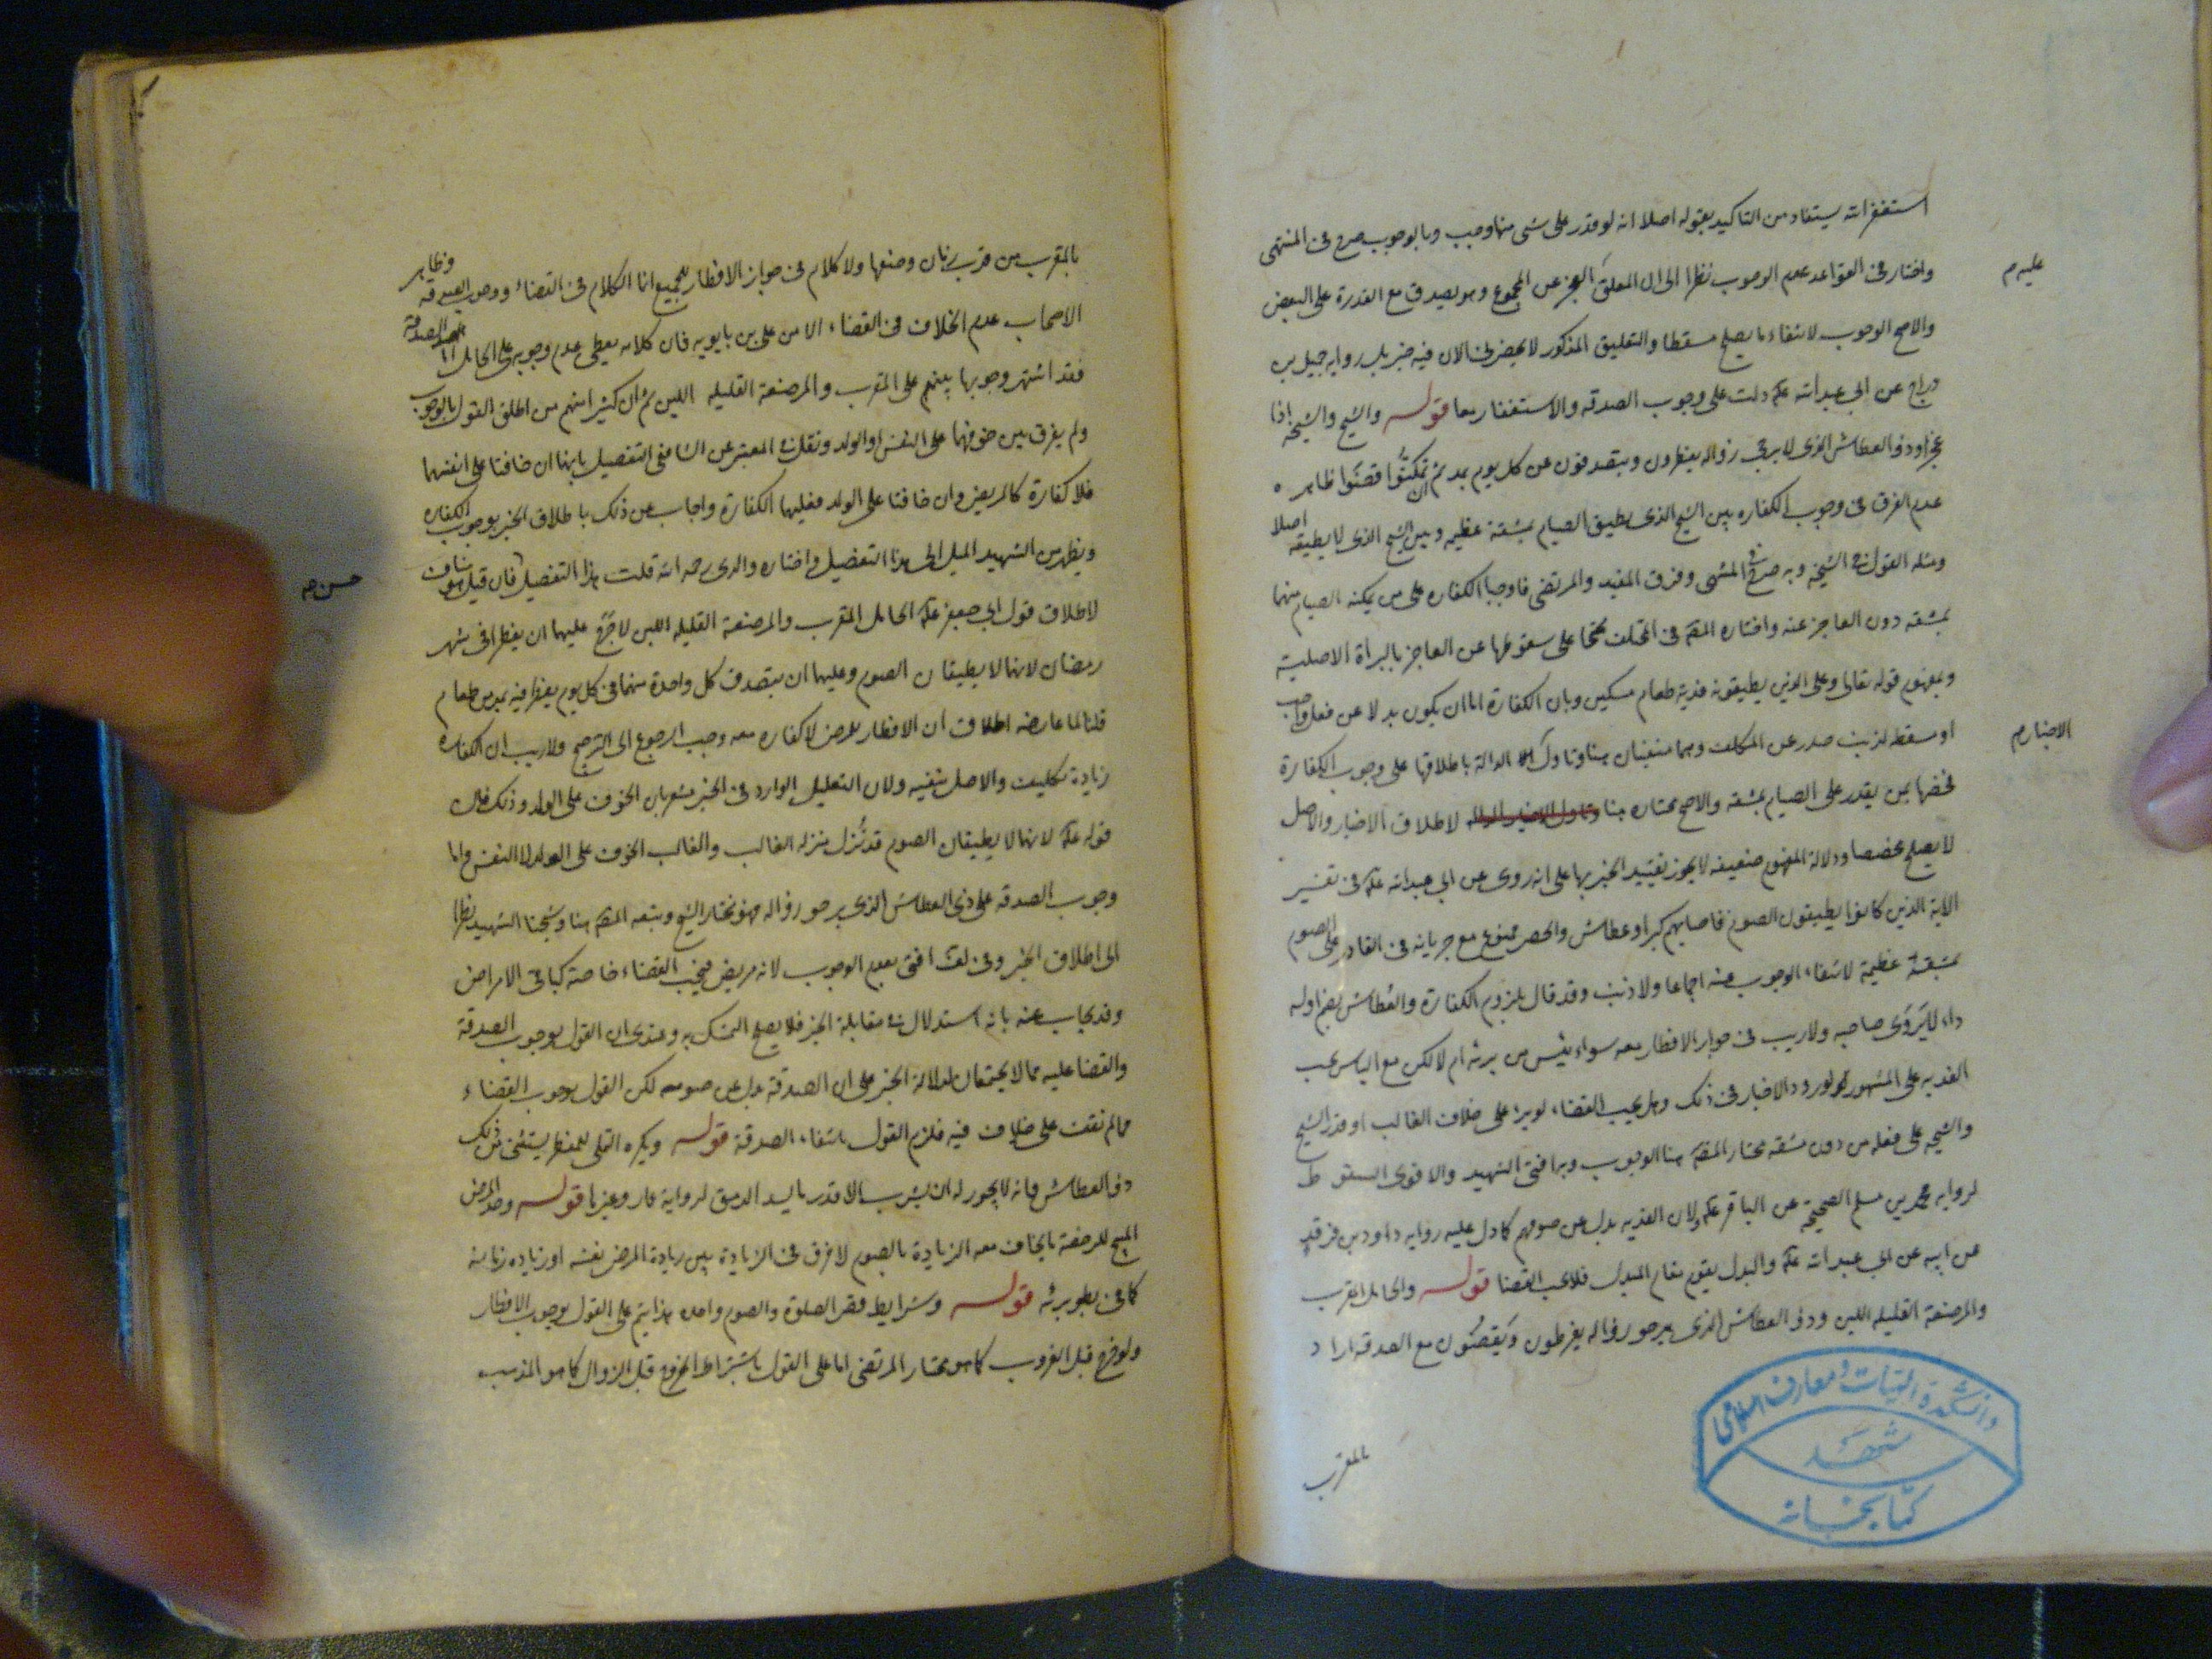 استغفر الله يستفاد من التاكيد بقوله اصلا انه لو قدر على شى منها وجب وبالوجوب صرح فى المنتهى
واختار فى القواعد عدم الوجوب نظرا الى ان المعلق العجز عن المجموع وهو يصدق مع القدرة على البعض
عليه م
والاصح الوجوب لانتفاء ما يصلح مسقطا والتعليق المذكور لا يحضرنى الان فيه خبر بل رواية جميل بن
دراج عن ابي عبد الله علم دلت على وجوب الصدقه والاستغفار معا قوله والشيخ والشيخه اذا
عجزا وذو العطاش الذى لا يرجى زواله يفطرون ويتصدقون عن كل يوم بمد ثم ان تمكنوا قضوا ظاهره
عدم الفرق فى وجوب الكفاره بين الشيخ الذى يطيق الصيام بمشقة عظيمه وبين الشيخ الذى لا يطيقه اصلا
ومثله القول فى الشيخه وبه صرح فى المنتهى وفرق المفيد والمرتضى فاوجبا الكفاره على من يمكنه الصيام منهما
بمشقه دون العاجز عنه واختاره المصم فى المختلف محتجا على سقوطها عن العاجز بالبراة الاصلية
وبمفهوم قوله تعالى وعلى الذين يطيقونه فدية طعام مسكين وبان الكفارة اما ان يكون بدلا عن فعل واجب
او مسقطه لذنب صدر عن المكلف وهما منفيان هنا وتاول الدالة باطلاقها على وجوب الكفارة
الاخبار م
فخصها بمن يقدر على الصيام بمشقه والاصح مختاره هنا لاطلاق الاخبار والاصل
لا يصلح مخصصا ودلالة المفهوم ضعيفه لا يجوز تقييد الخبر بها على انه روى عن ابي عبد الله علم فى تفسير
الاية الذين كانوا يطيقون الصوم فاصابهم كبر او عطاش والحصر ممنوع مع جريانه فى القادر على الصوم
بمشقة عظيمة لانتفاء الوجوب عنه اجماعا ولا ذنب وقد قال بلزوم الكفارة والعطاش بضم اوله
داء لا يروى صاحبه ولا ريب فى جواز الافطار معه سواء يئس من برئه ام لا لكن مع الياس يجب
الفديه على المشهور لورود الاخبار فى ذلك وهل يجب القضاء لو برء على خلاف الغالب او قدر الشيخ
والشيخه على فعله من دون مشقه مختار المصم هنا الوجوب وبه افتى الشهيد والاقوى السقوط
لرواية محمد بن مسلم الصحيحة عن الباقر علم ولان الفديه بدل عن صومهم كما دل عليه رواية داود بن فرقد
عن ابيه عن ابي عبد الله علم والبدل يقوم مقام المبدل فلا يجب القضا قوله والحامل المقرب
والمرضعة القليله اللبن وذو العطاش الذى يرجو زواله يفرطون ويقضون مع الصدقه اراد
بالمقرب
دانشكدهٔ الهيات و معارف اسلامى
مشهد
كتابخانه
بالمقرب من قرب زمان وضعها ولا كلام فى جواز الافطار للجميع انما الكلام فى القضاء ووجوب الصدقه وظاهر
الاصحاب عدم الخلاف فى القضاء الا من على بن بابويه فان كلامه يعطى عدم وجوبه على الحامل اما الصدقة
فقد اشتهر وجوبها بينهم على المقرب والمرضعة القليله اللبن ثم ان كثيرا منهم من اطلق القول بالوجوب
ولم يفرق بين خوفهما على النفس او الولد ونقل فى المعتبر عن الشافعى التفصيل بانهما ان خافتا على انفسهما
فلا كفارة كالمريض وان خافتا على الولد فعليهما الكفارة واجاب عن ذلك باطلاق الخبر بوجوب الكفاره
ويظهر من الشهيد الميل الى هذا التفصيل واختاره والدى رحمه الله قلت هذا التفصيل فان قيل هو مناف
حسن صح
لاطلاق قول ابي جعفر علم الحامل المقرب والمرضعة القليلة اللبن لا حرج عليهما ان يفطرا فى شهر
رمضان لانهما لا يطيقان الصوم وعليهما ان يتصدق كل واحدة منهما فى كل يوم يفطر فيه بمد من طعام
قلنا لما عارضه اطلاق ان الافطار للمرض لا كفاره معه وجب الرجوع الى الترجيح ولا ريب ان الكفاره
زيادة تكليف والاصل ينفيه ولان التعليل الوارد فى الخبر مشعر بان الخوف على الولد وذلك فان
قوله علم لانهما لا يطيقان الصوم قد نزل منزله الغالب والغالب الخوف على الولد لا النفس واما
وجوب الصدقه على ذى العطاش الذى يرجو زواله فهو مختار الشيخ وتبعه المصم هنا وشيخنا الشهيد نظرا
الى اطلاق الخبر وفى لف افتى بعدم الوجوب لانه مريض فيجب القضاء خاصة كباقى الامراض
وقد يجاب عنه بانه استدلال فى مقابلة الخبر فلا يصلح التمسك به وعندى ان القول بوجوب الصدقة
والقضا عليه مما لا يجتمعان لدلالة الخبر على ان الصدقة بدل عن صومه لكن القول بوجوب القضاء
مما لم نقف على خلاف فيه فلزم القول بانتفاء الصدقة قوله ويكره التملى للمفطر يستثنى من ذلك
ذو العطاش فانه لا يجوز له ان يشرب الا قدر ما يسد الرمق لرواية عمار وغيرها قوله وحد المرض
المبيح للرخصة ما يخاف معه الزيادة بالصوم لا فرق فى الزيادة بين زيادة المرض نفسه او زيادة زمانه
كما فى بطو برئه قوله وشرايط قصر الصلوة والصوم واحده هذا يتم على القول بوجوب الافطار
ولو خرج قبل الغروب كما هو مختار المرتضى اما على القول باشتراط الخروج قبل الزوال كما هو المذهب